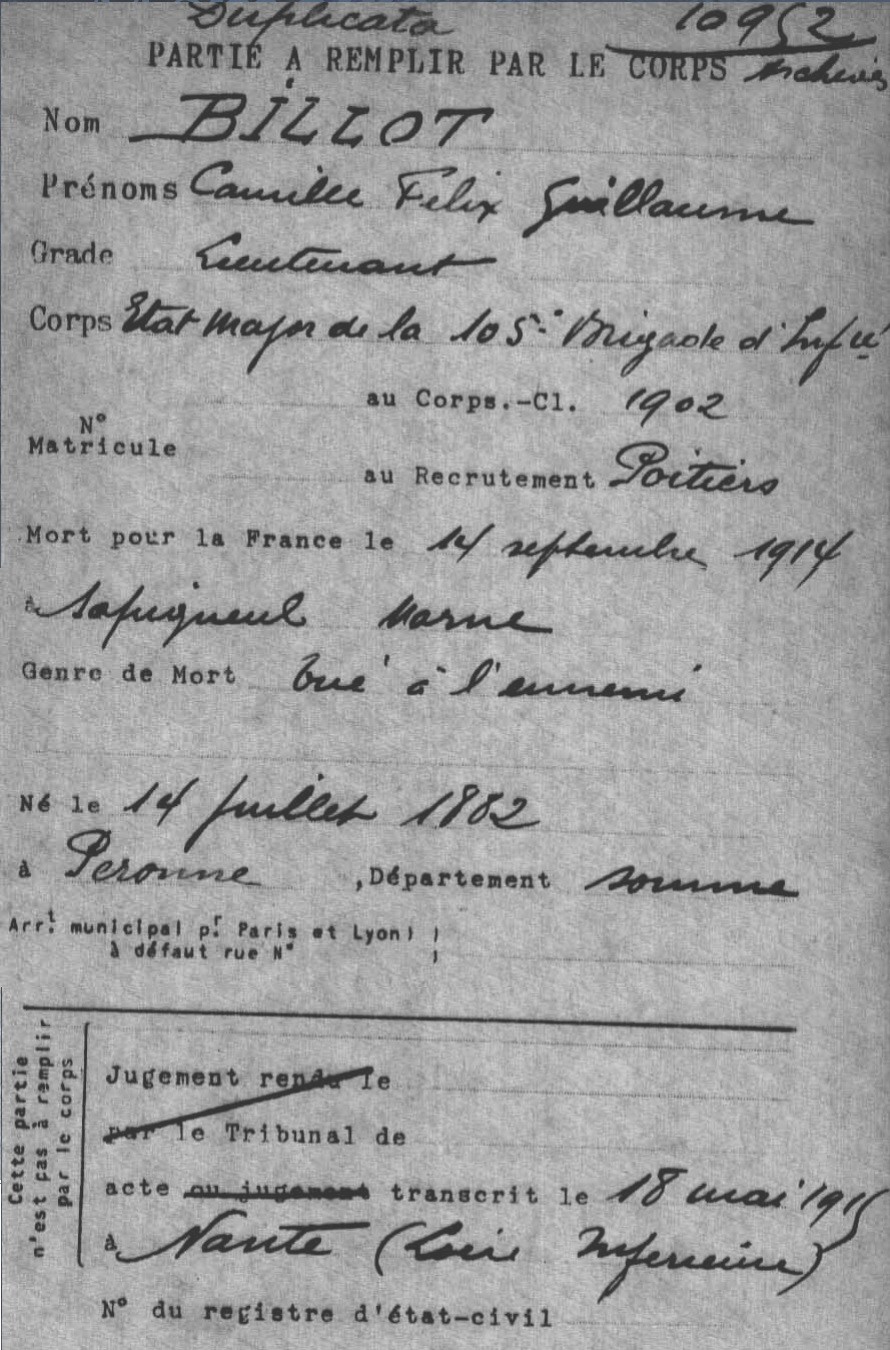 Duplicata 10952
PARTIE A REMPLIR PAR LE CORPS Archives
Nom BILLOT
Prénoms Camille Felix Guillaume
Grade Lieutenant
Corps Etat Major de la 105e Brigade d'Infie
au Corps.-Cl. 1902
N°
Matricule
au Recrutement Poitiers
Mort pour la France le 14 septembre 1914
à Sapigneul Marne
Genre de Mort tué à l'ennemi
Né le 14 Juillet 1882
à Peronne ,Département Somme
Arrt municipal pr Paris et Lyon)
à défaut rue N°
Cette partie
n'est pas à remplir
par le corps
Jugement rendu le
par le Tribunal de
acte ou jugement transcrit le 18 mai 1915
à Nante (Loire Inferieure)
N° du registre d'état-civil